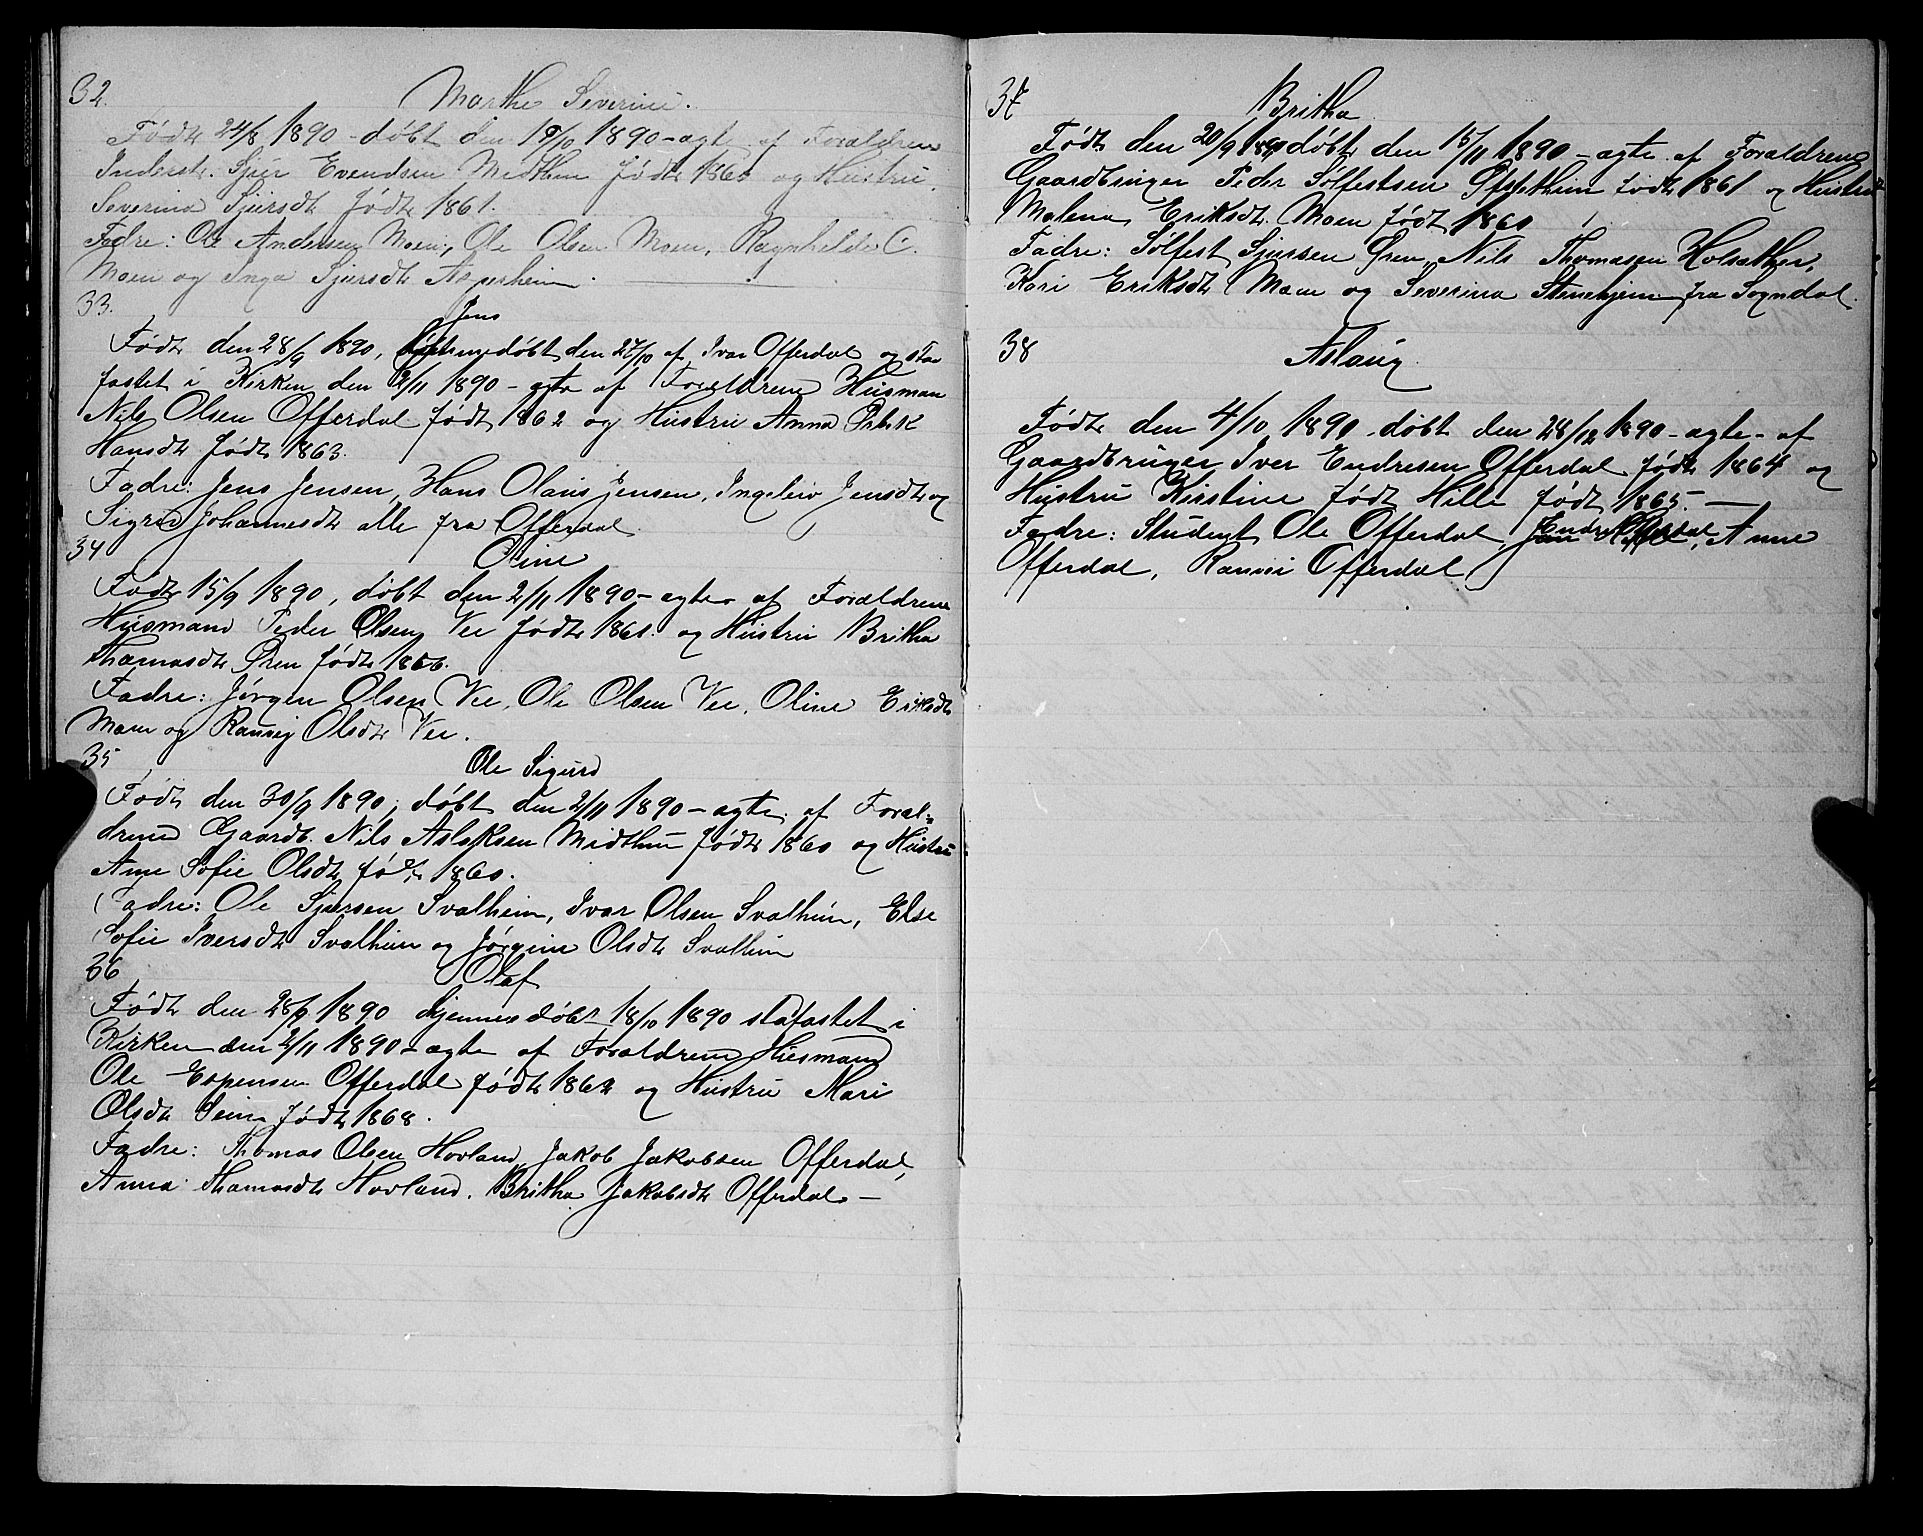 32.
Marthe Severine.
Født 24/8 1890 - døbt den 19/10 1890 - ægte af Forældrene
Inderst. Sjur Evendsen Midthun født 1860 og Hustru
Severina Sjursdt født 1861.
Fadre: Ole Andersen Moen, Ole Olsen Moen, Ragnhilde O.
Moen og Inga Sjursdt Asperheim.
33.
Jens
Født den 28/9 1890, hjemmedøbt den 27/10 af Ivar Offerdal og sta
fæstet i Kirken den 2/11 1890 - ægte af Forældrene Husman
Nils Olsen Offerdal født 1862 og Hustru Anna
Hansdt født 1863.
Fadre: Jens Jensen, Hans Olaus Jensen, Ingeleiv Jensdt og
Sigrid Johannesdt alle fra Offerdal.
34
Oline
Født 15/9 1890, døbt den 2/11 1890 - ægte af Forældrene
Husmand Peder Olsen Vee født 1861. og Hustru Britha
Thomasdt Øren født 1866.
Fadre: Jørgen Olsen Vee, Ole Olsen Vee, Oline Eriksdt
Moen og Ranveig Olsdt Vee.
35
Ole Sigurd
Født den 30/9 1890, døbt den 2/11 1890 - ægte af Foræl-
drene Gaardb. Nils Aslaksen Midthun født 1860 og Hustru
Ane Sofie Olsdt født 1860.
Fadre: Ole Sjursen Svalheim, Ivar Olsen Svalheim, Else
Sofie Iversdt Svalheim og Jørgine Olsdt Svalheim
36
Olaf
Født den 28/9 1890 hjemmedøbt 18/10 1890 stafæstet i
Kirken den 2/11 1890 - ægte af Forældrene Husmand
Ole Espensen Offerdal født 1862 og Hustru Mari
Olsdt Seim født 1868.
Fadre: Thomas Olsen Hovland, Jakob Jakobsen Offerdal,
Anna Thomasdt Hovland, Britha Jakobsdt Offerdal -
37
Britha
Født den 20/9 1890 døbt den 15/11 1890 - ægte af Forældrene
Gaardbruger Peder Sølfestsen født 1861 og Hustru
Malena Eriksdt Moen født 1860
Fadre: Sølfest Sjursen Øren, Nils Thomasen Holsæther,
Kari Eriksdt Moen og Severina Stenehjem fra Sogndal.
38
Aslaug
Født den 4/10 1890 - døbt den 28/12 1890 - ægte - af
Gaardbruger Iver Endresen Offerdal født 1864 og
Hustru Kirstine født Hille født 1865. -
Fadre: Student Ole Offerdal, Endre Offerdal, Anne
Offerdal, Ranvei Offerdal